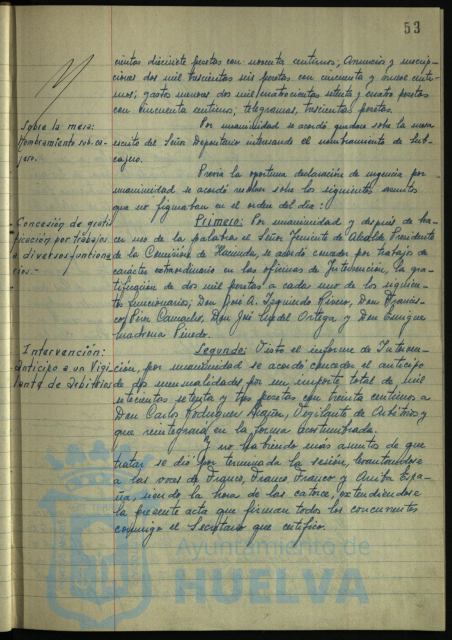 53
cientas diecisiete pesetas con noventa centimos; Anuncios y suscrip-
ciones dos mil trescientas seis pesetas con cincuenta y nueve centi-
mos; gastos menores dos mil cuatrocientas setenta y cuatro pesetas
con cincuenta centimos; telegramas, trescientas pesetas.
Sobre la mesa:
Nombramiento sub-ca-
jero.
Por unanimidad se acordó quedase sobre la mesa
escrito del Señor Depositario interesando el nombramiento de Sub-
cajero.
Previa la oportuna declaración de urgencia por
unanimidad se acordó resolver sobre los siguientes asuntos
que no figuraban en el orden del dia:
Concesión de grati
ficación por trabajos
a diversos funciona
rios.-
Primero: Por unanimidad y después de ha-
cer uso de la palabra el Señor Teniente de Alcalde Presidente
de la Comisión de Hacienda, se acordó conceder por trabajos de
caracter extraordinario en las oficinas de Intervención, la gra-
tificación de dos mil pesetas a cada uno de los siguien-
tes funcionarios; Don José A. Izquierdo Rivero, Don Francis-
co Pérez Camacho, Don José Seidel Ortega y Don Enrique
Ladrona Pinedo.
Intervención:
Anticipo a un Vigi
lante de Arbitrios
Segundo: Visto el informe de Interven-
ción, por unanimidad se acordó conceder el anticipo
de dos mensualidades por un importe total de mil
setecientas setenta y tres pesetas con treinta centimos a
Don Carlos Rodriguez Vigilante de Arbitrios y
que reintegrará en la forma acostumbrada.
Y no habiendo más asuntos de que
tratar se dió por terminada la sesión, levantandose
a las voces de Franco, Franco, Franco y Arriba Espa-
ña, siendo la hora de las catorce, extendiendose
la presente acta que firman todos los concurrentes
conmigo el Secretario que certifico.
Ayuntamiento de
HUELVA